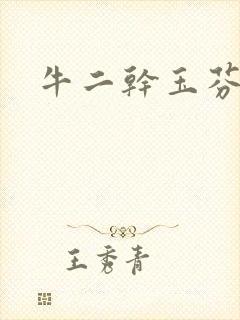 牛二幹玉芬
王秀青